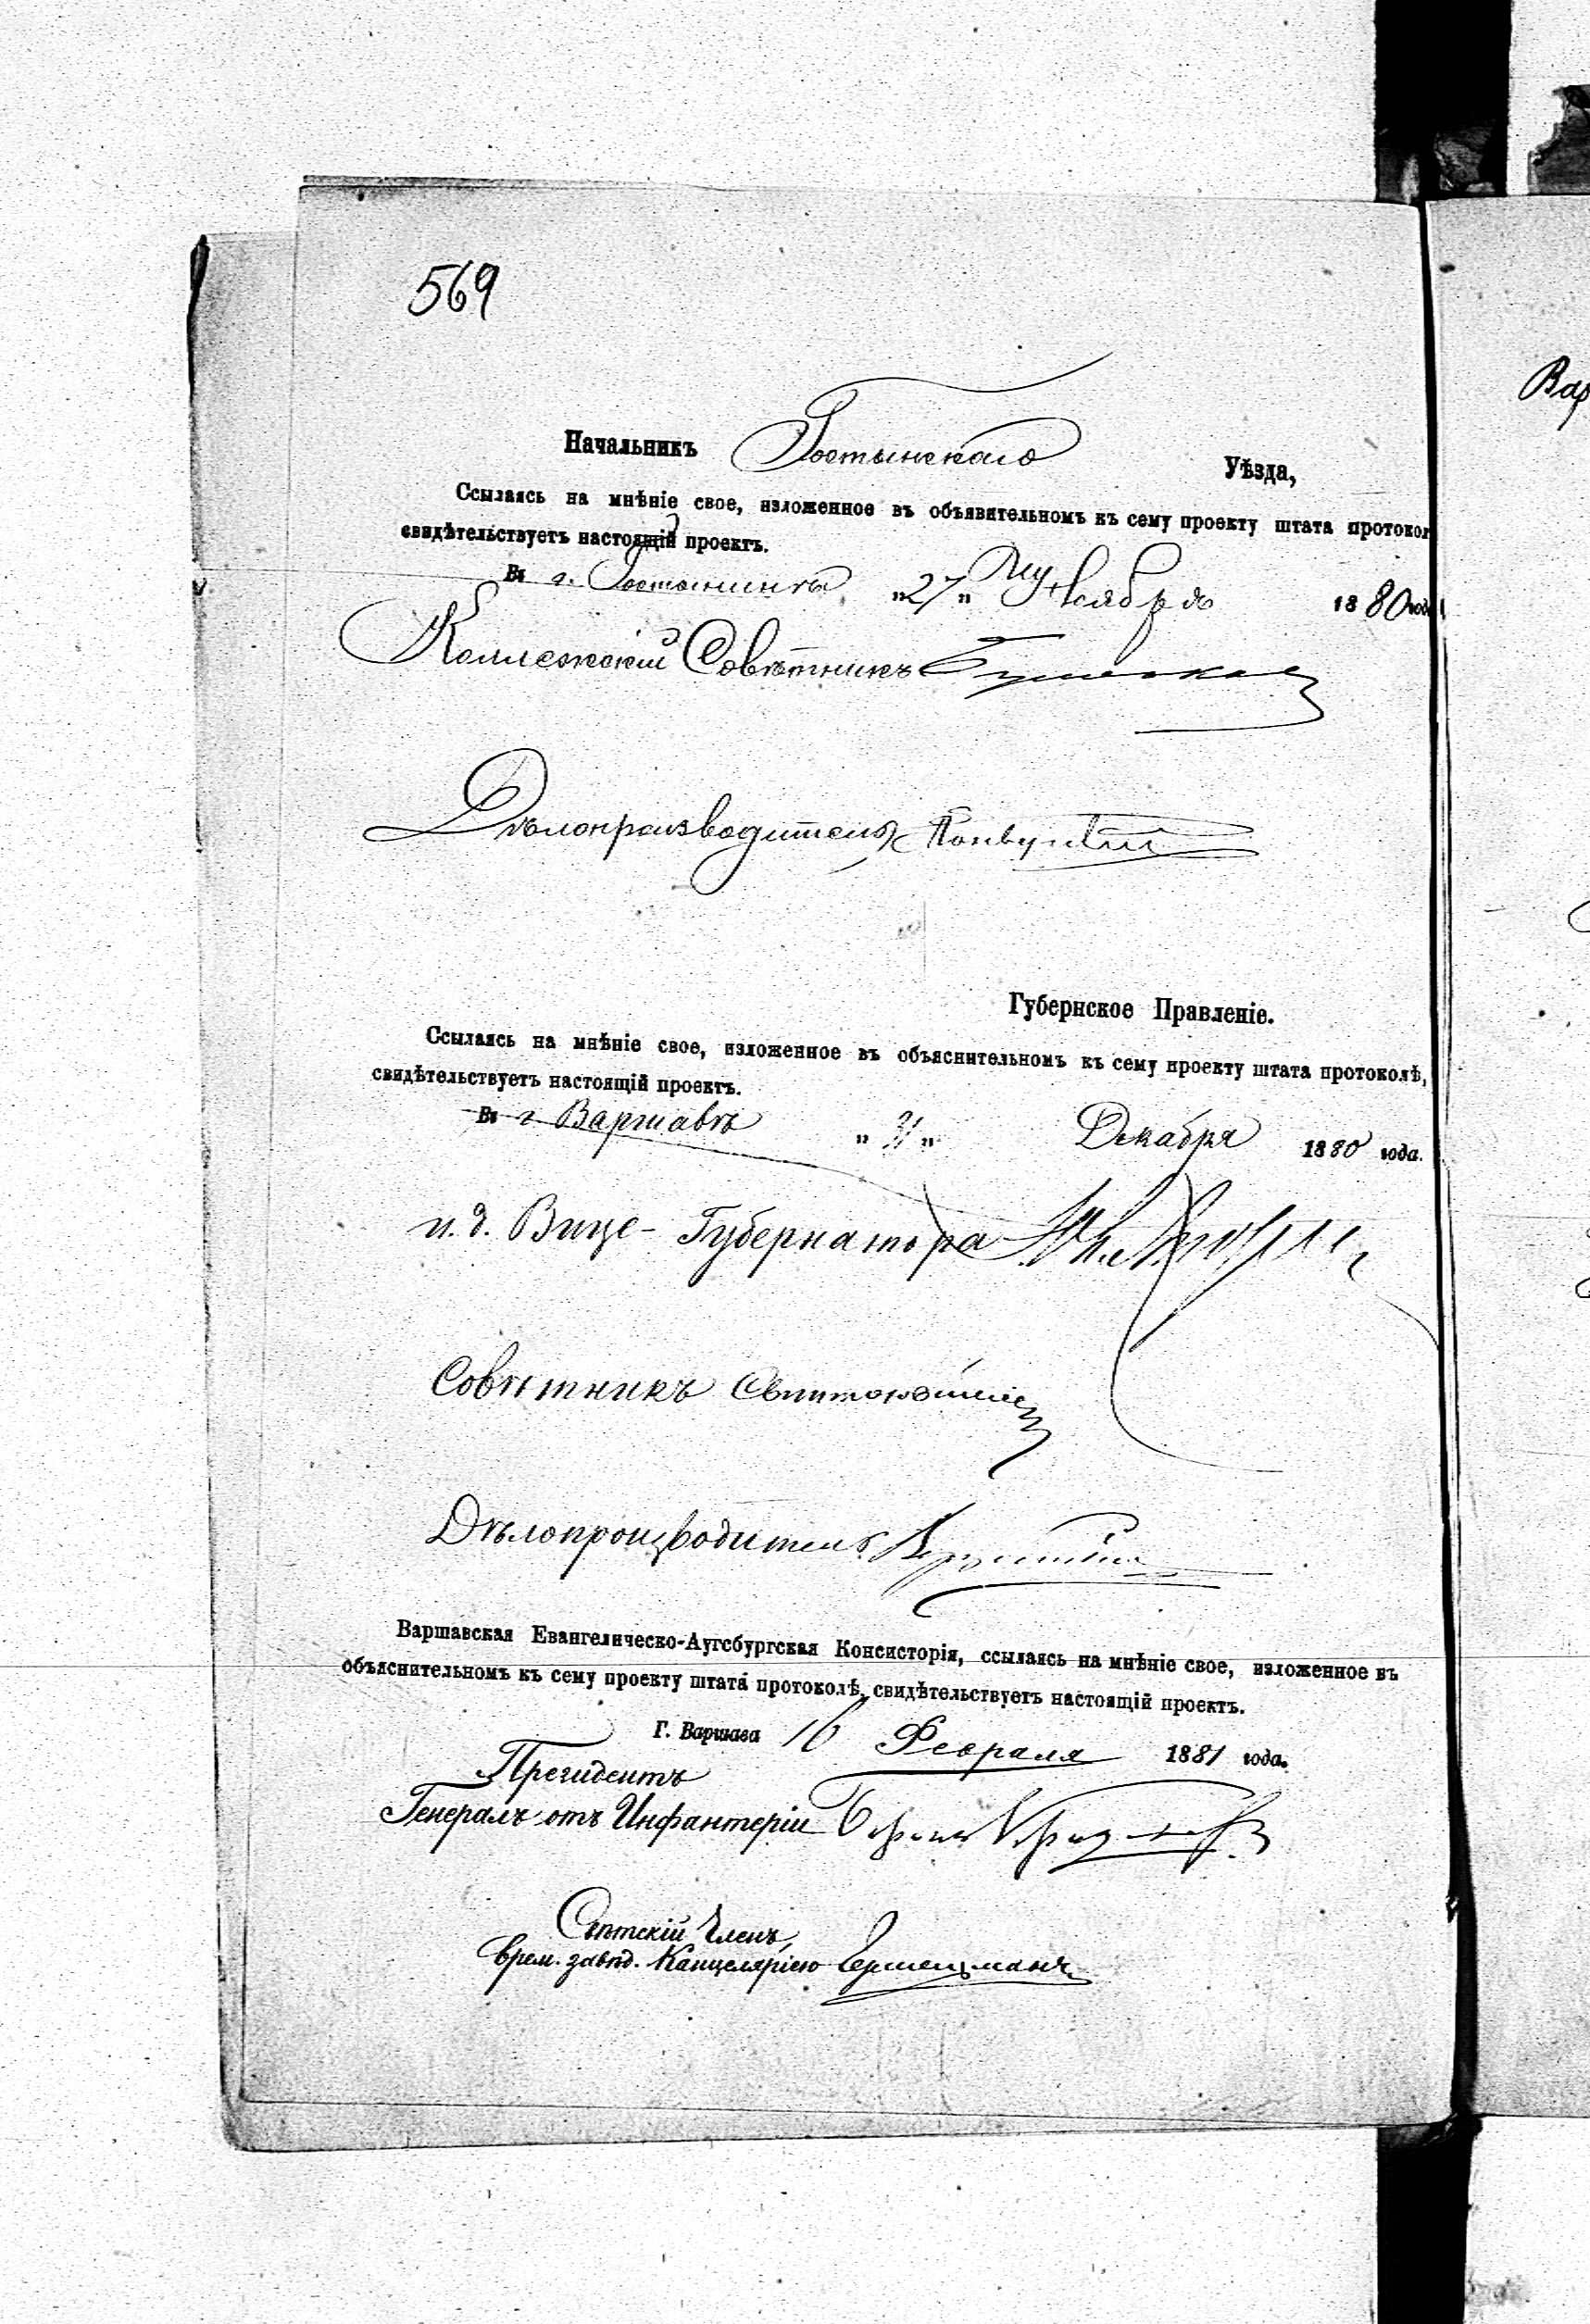 569
Начальникъ Гостынскаго Уѣзда,
Ссылаясь на мнѣніе свое, изложенное въ объявительномъ къ сему проекту штата протокол
свидѣтельствуетъ настоящій проектъ.
Въ г. Гостынинѣ „27„ Ноября 1880 года
Коллежскій Совѣтникъ
Дѣлопроизводитель
Губернское Правленіе.
Ссылаясь на мнѣніе свое, изложенное въ объяснительномъ къ сему проекту штата протоколѣ,
свидѣтельствуетъ настоящій проектъ.
Въ г Варшавѣ „31„ Декабря 1880 года.
и.д. Вице-Губернатора
Совѣтникъ
Дѣлопроизводитель
Варшавская Евангелическо-Аугсбургская Консисторія, ссылаясь на мнѣніе свое, изложенное въ
объяснительномъ къ сему проекту штата протоколѣ, свидѣтельствуетъ настоящій проектъ.
Г. Варшава 16 Февраля 1881 года.
Президентъ
Генералъ отъ Инфантеріи Баронъ
Свѣтскій Членъ,
врем. завѣд. Канцеляріею
Вар